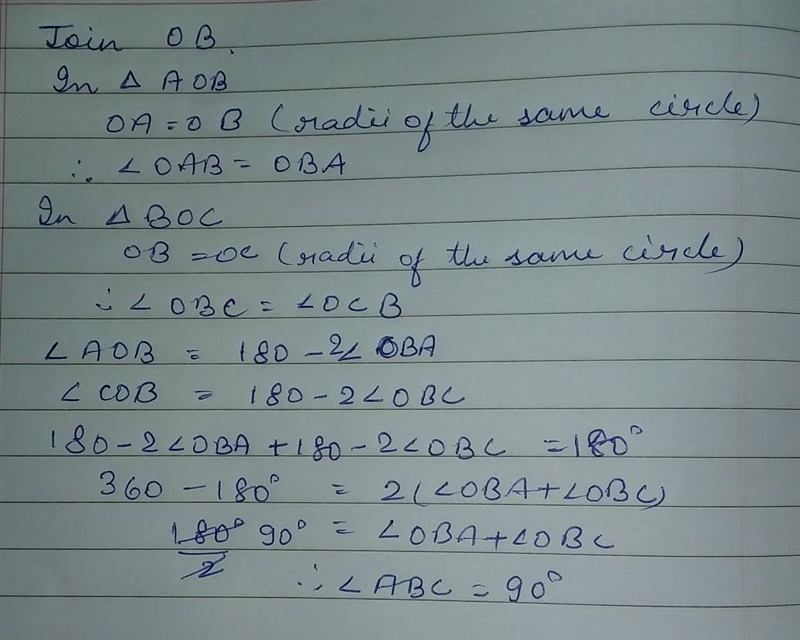 Join OB.
In △ AOB
OA = OB (radii of the same circle)
∴ ∠OAB = OBA
In △ BOC
OB = OC (radii of the same circle)
∴ ∠OBC = ∠OCB
∠AOB = 180 - 2∠OBA
∠COB = 180 - 2∠OBC
180 - 2∠OBA + 180 - 2∠OBC = 180°
360 - 180° = 2(∠OBA + ∠OBC)
180°/2 90° = ∠OBA + ∠OBC
∴ ∠ABC = 90°